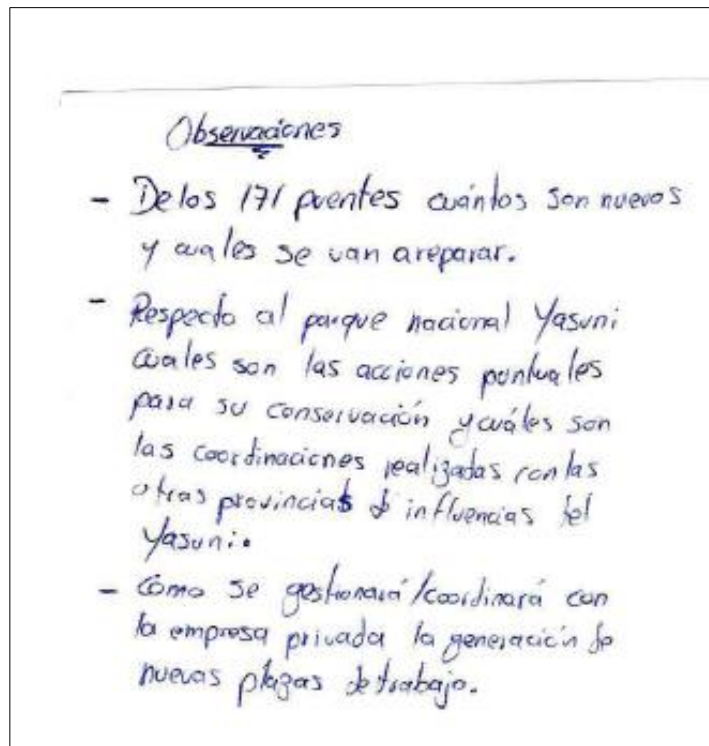 Observaciones
- De los 171 puentes cuántos son nuevos
y cuales se van a reparar.
- Respecto al parque nacional Yasuni
cuales son las acciones puntuales
para su conservación y cuáles son
las coordinaciones realizadas con las
otras provincias de influencias del
Yasuni.
- Cómo se gestionará/coordinará con
la empresa privada la generación de
nuevas plazas de trabajo.